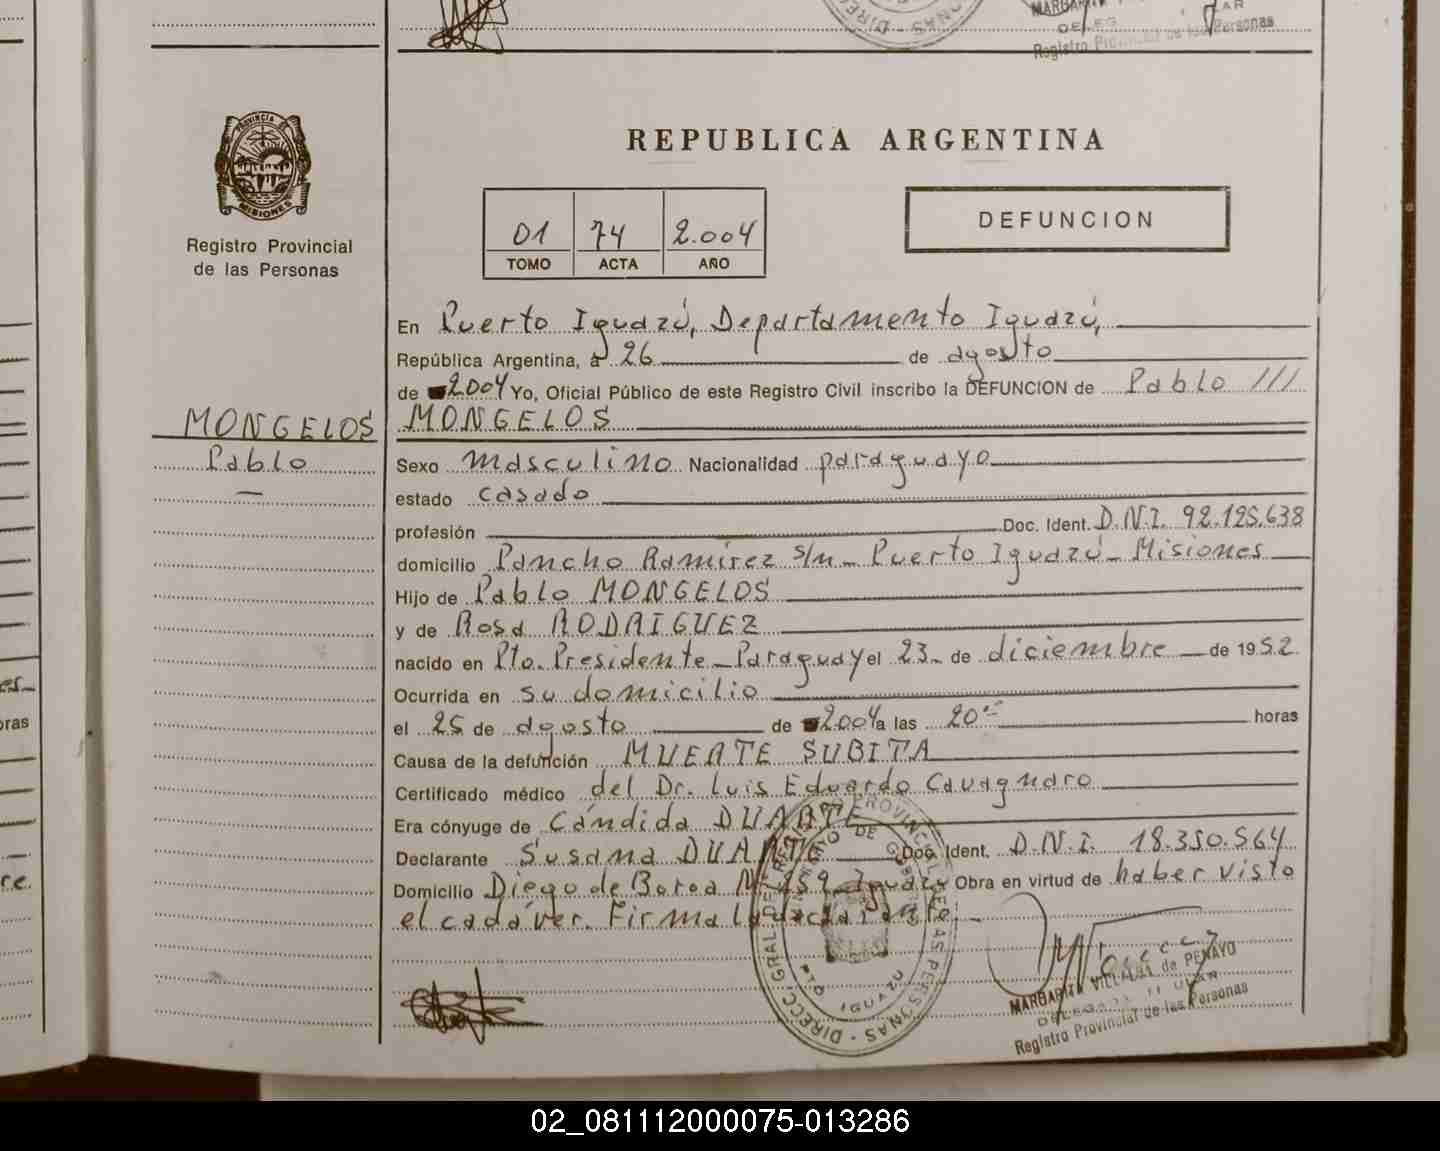 REPUBLICA ARGENTINA
PROVINCIA DE
MISIONES
Registro Provincial
de las Personas
01 74 2.004
TOMO ACTA AÑO
DEFUNCION
En Puerto Iguazú, Departamento Iguazú,
República Argentina, a 26 de agosto
de 2004 Yo, Oficial Público de este Registro Civil inscribo la DEFUNCION de Pablo ///
MONGELOS
MONGELOS
Pablo
Sexo masculino Nacionalidad paraguayo
estado casado
profesión Doc. Ident. D.N.I. 92.125.638
domicilio Pancho Ramírez s/n - Puerto Iguazú - Misiones
Hijo de Pablo MONGELOS
y de Rosa RODRIGUEZ
nacido en Pto. Presidente - Paraguay el 23 de diciembre de 1952.
Ocurrida en su domicilio
el 25 de agosto de 2004 a las 20 horas
Causa de la defunción MUERTE SUBITA
Certificado médico del Dr. Luis Eduardo Cavagnaro
Era cónyuge de Cándida DUARTE
Declarante Susana DUARTE Doc. Ident. D.N.I. 18.350.564
Domicilio Diego de Boroa Nº 259 - Iguazú Obra en virtud de haber visto
el cadáver. Firma la declarante. -
PTO. IGUAZU
MARGARITA VILLALBA de PENAYO
DELEGADA TITULAR
Registro Provincial de las Personas
02_081112000075-013286